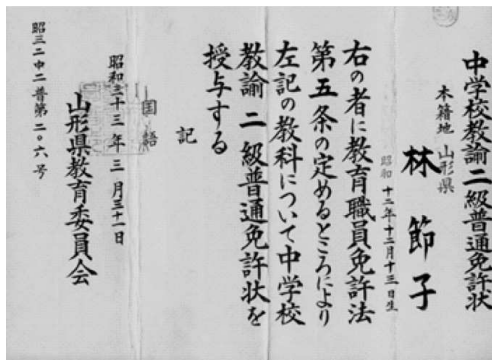 中学校教諭二級普通免許状
本籍地 山形県
林 節子
昭和十二年十二月十三日生
右の者に教育職員免許法
第五条の定めるところにより
左記の教科について中学校
教諭二級普通免許状を
授与する
記
国語
昭和三十三年三月三十一日
山形県教育委員会
昭三二中二普第二〇六号